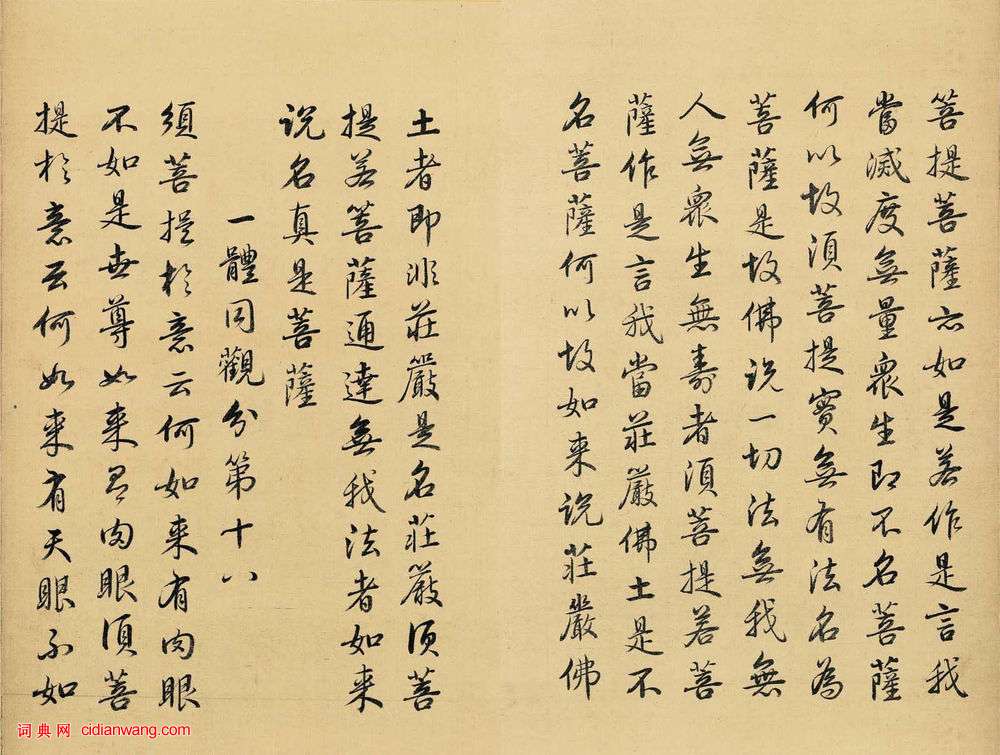 菩提菩薩亦如是若作是言我
當滅度無量眾生即不名菩薩
何以故須菩提實無有法名為
菩薩是故佛說一切法無我無
人無眾生無壽者須菩提若菩
薩作是言我當莊嚴佛土是不
名菩薩何以故如来說莊嚴佛
土者即非莊嚴是名莊嚴須菩
提若菩薩通達無我法者如来
說名真是菩薩
一體同觀分第十八
須菩提於意云何如来有肉眼
不如是世尊如来有肉眼須菩
提於意云何如来有天眼不如
词典网 cidianwang.com